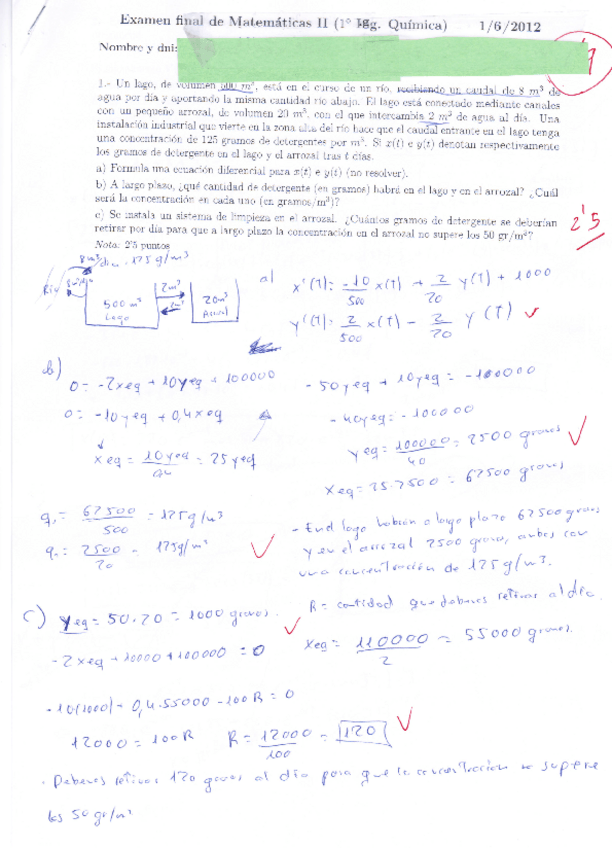 Examen final de Matemáticas II (1º Ing. Química) 1/6/2012
Nombre y dni:
1.- Un lago, de volumen 500 m³, está en el curso de un río, recibiendo un caudal de 8 m³ de
agua por día y aportando la misma cantidad río abajo. El lago está conectado mediante canales
con un pequeño arrozal, de volumen 20 m³, con el que intercambia 2 m³ de agua al día. Una
instalación industrial que vierte en la zona alta del río hace que el caudal entrante en el lago tenga
una concentración de 125 gramos de detergentes por m³. Si x(t) e y(t) denotan respectivamente
los gramos de detergente en el lago y el arrozal tras t días.
a) Formula una ecuación diferencial para x(t) e y(t) (no resolver).
b) A largo plazo, ¿qué cantidad de detergente (en gramos) habrá en el lago y en el arrozal? ¿Cuál
será la concentración en cada uno (en gramos/m³)?
c) Se instala un sistema de limpieza en el arrozal. ¿Cuántos gramos de detergente se deberían
retirar por día para que a largo plazo la concentración en el arrozal no supere los 50 gr/m³?
2'5
Nota: 2'5 puntos
8m³/dia · 125 g/m³
2m³
2m³
500 m³
Lago
20m³
Arrozal
a) x'(t) = -10/500 x(t) + 2/20 y(t) + 1000
y'(t) = 2/500 x(t) - 2/20 y(t)
b)
0 = -2xeq + 10yeq + 100000
0 = -10yeq + 0,4xeq
xeq = 10yeq/0,4 = 25yeq
-50yeq + 10yeq = -100000
-40yeq = -100000
yeq = 100000/40 = 2500 gramos
xeq = 25·2500 = 62500 gramos
q = 62500/500 = 125g/m³
q = 2500/20 = 125g/m³
- En el lago habrán a largo plazo 62500 gramos
y en el arrozal 2500 gramos, ambos con
una concentración de 125 g/m³.
c) yeq = 50·20 = 1000 gramos.
R = cantidad que debemos retirar al día.
-2xeq + 10000 + 100000 = 0
xeq = 110000/2 = 55000 gramos.
-10(1000) + 0,4·55000 - 100R = 0
12000 = 100R R = 12000/100 = 120
· Debemos retirar 120 gramos al día para que la concentración no supere
los 50 gr/m³